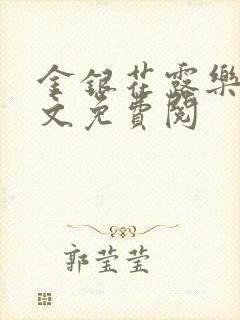 金銀花露樂
文免費閱
郭莹莹